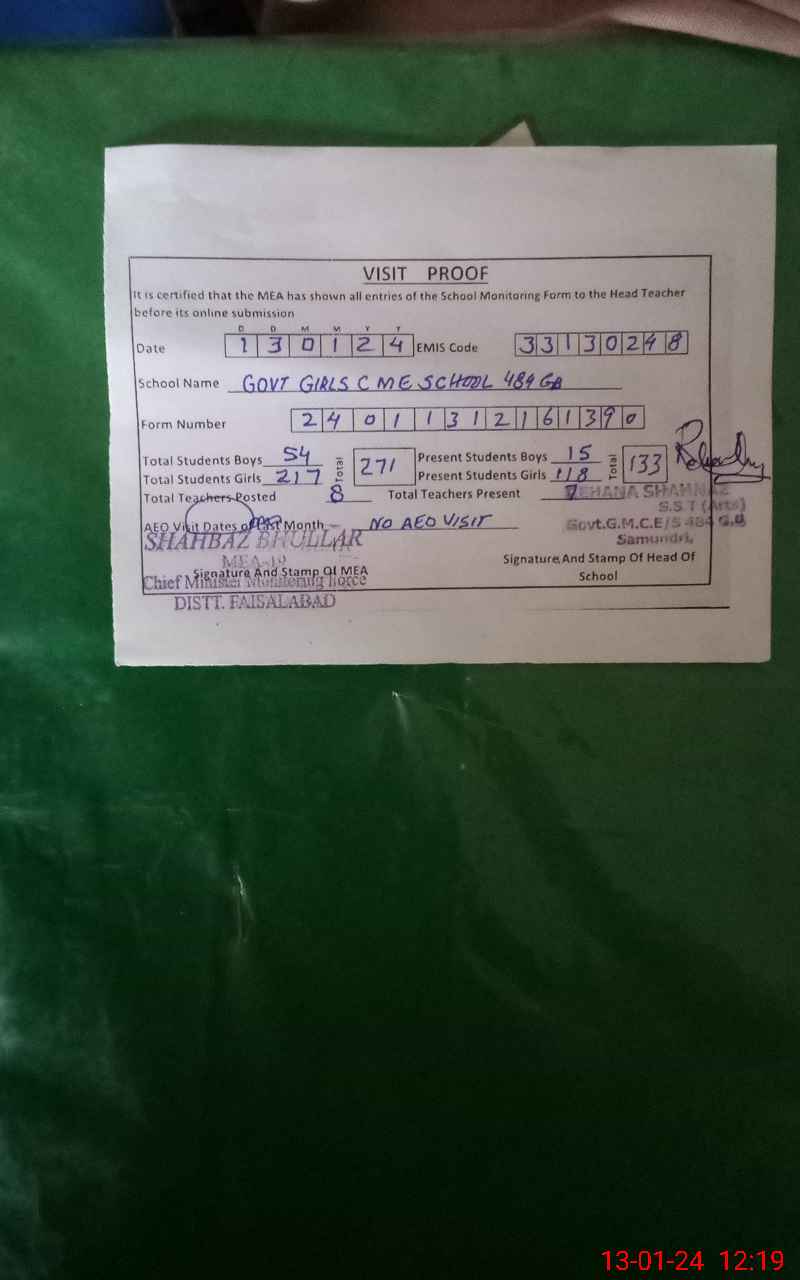 VISIT PROOF
It is certified that the MEA has shown all entries of the School Monitoring Form to the Head Teacher
before its online submission
D D M M Y Y
Date 1 3 0 1 2 4 EMIS Code 3 3 1 3 0 2 4 8
School Name GOVT GIRLS C M E SCHOOL 484 GB
Form Number 2 4 0 1 1 3 1 2 1 6 1 3 9 0
Total Students Boys 54 Total 271 Present Students Boys 15 Total 133
Total Students Girls 217 Present Students Girls 118
Total Teachers Posted 8 Total Teachers Present 7
REHANA SHAHNAZ
S.S.T (Arts)
AEO Visit Dates of Last Month - NO AEO VISIT
Govt.G.M.C.E/S 484 G.B
Samundri,
SHAHBAZ BHULLAR
MEA-19
Signature And Stamp Of MEA
Chief Minister Monitoring Force
DISTT. FAISALABAD
Signature And Stamp Of Head Of
School
13-01-24 12:19